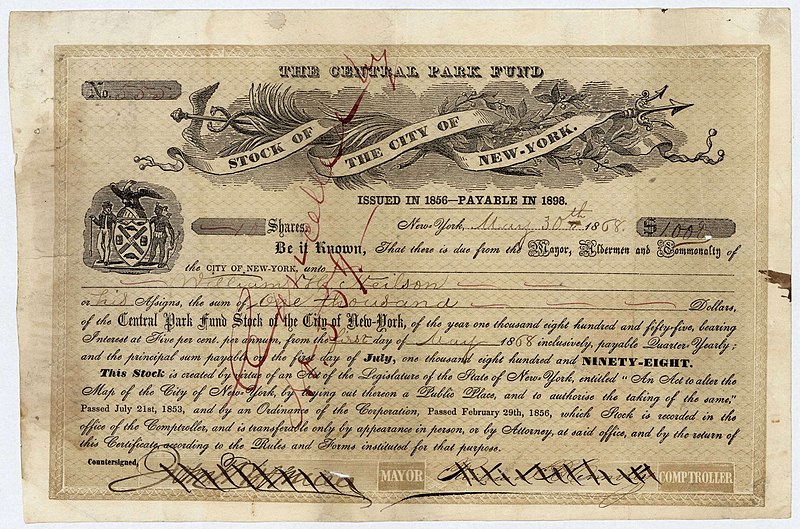 THE CENTRAL PARK FUND
No. 555
STOCK OF THE CITY OF NEW-YORK.
ISSUED IN 1856—PAYABLE IN 1898.
Shares. New-York, May 30th 1868. $ 1000
Be it Known, That there is due from the Mayor, Aldermen and Commonalty of
the CITY OF NEW-YORK, unto
William Neilson
or his Assigns, the sum of One thousand Dollars,
of the Central Park Fund Stock of the City of New-York, of the year one thousand eight hundred and fifty-five, bearing
Interest at Five per cent. per annum, from the first day of May 1868 inclusively, payable Quarter-Yearly;
and the principal sum payable on the first day of July, one thousand eight hundred and NINETY-EIGHT.
This Stock is created by virtue of an Act of the Legislature of the State of New-York, entitled "An Act to alter the
Map of the City of New-York, by laying out thereon a Public Place, and to authorise the taking of the same,"
Passed July 21st, 1853, and by an Ordinance of the Corporation, Passed February 29th, 1856, which Stock is recorded in the
office of the Comptroller, and is transferable only by appearance in person, or by Attorney, at said office, and by the return of
this Certificate, according to the Rules and Forms instituted for that purpose.
Countersigned, MAYOR COMPTROLLER